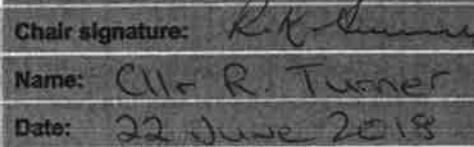 Chair signature: R.K.
Name: Cllr R. Turner
Date: 22 June 2018